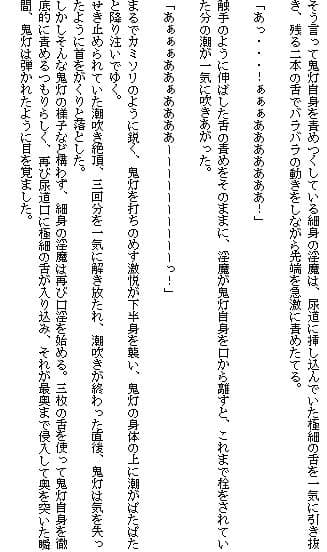 そう言って鬼灯自身を責めつくしている細身の淫魔は、尿道に挿し込んでいた極細の舌を一気に引き抜
き、残る二本の舌でバラバラの動きをしながら先端を急激に責めたてる。
「あっ・・・！ぁぁぁああああああ！」
触手のように伸ばした舌の責めをそのままに、淫魔が鬼灯自身を口から離すと、これまで栓をされてい
た分の潮が一気に吹きあがった。
「あぁぁぁああぁああああーーーーーーーーーっ！」
まるでカミソリのように鋭く、鬼灯を打ちのめす激悦が下半身を襲い、鬼灯の身体の上に潮がぱたぱた
と降り注いでゆく。
せき止められていた潮吹き絶頂、三回分を一気に解き放たれ、潮吹きが終わった直後、鬼灯は気を失っ
たように首をがくりと落とした。
しかしそんな鬼灯の様子など構わず、細身の淫魔は再び口淫を始める。三枚の舌を使って鬼灯自身を徹
底的に責めるつもりらしく、再び尿道口に極細の舌が入り込み、それが最奥まで侵入して奥を突いた瞬
間、鬼灯は弾かれたように目を覚ました。